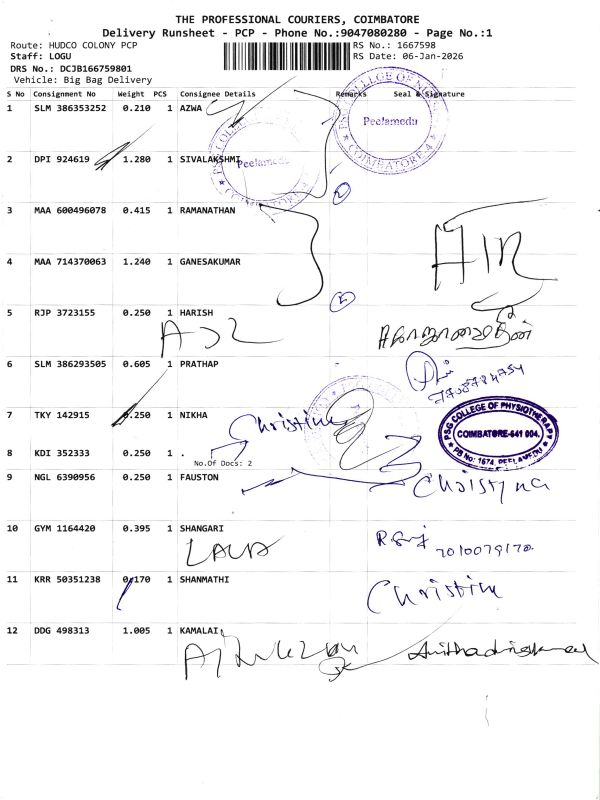 THE PROFESSIONAL COURIERS, COIMBATORE
Delivery Runsheet - PCP - Phone No.:9047080280 - Page No.:1
Route: HUDCO COLONY PCP
RS No.: 1667598
Staff: LOGU
RS Date: 06-Jan-2026
DRS No.: DCJB166759801
Vehicle: Big Bag Delivery
S No Consignment No Weight PCS Consignee Details Remarks Seal & Signature
1 SLM 386353252 0.210 1 AZWA
PSG COLLEGE OF
Peelamedu
COIMBATORE-4
2 DPI 924619 1.280 1 SIVALAKSHMI
Peelamedu
COIMBATORE-4
3 MAA 600496078 0.415 1 RAMANATHAN
4 MAA 714370063 1.240 1 GANESAKUMAR
5 RJP 3723155 0.250 1 HARISH
6 SLM 386293505 0.605 1 PRATHAP
7 TKY 142915 0.250 1 NIKHA
Christina
PSG COLLEGE OF PHYSIOTHERAPY
COIMBATORE-641 004.
PB No: 1674, PEELAMEDU
8 KDI 352333 0.250 1 .
No.Of Docs: 2
9 NGL 6390956 0.250 1 FAUSTON
Christyna
10 GYM 1164420 0.395 1 SHANGARI
7010079170
11 KRR 50351238 0.170 1 SHANMATHI
Christina
12 DDG 498313 1.005 1 KAMALAI